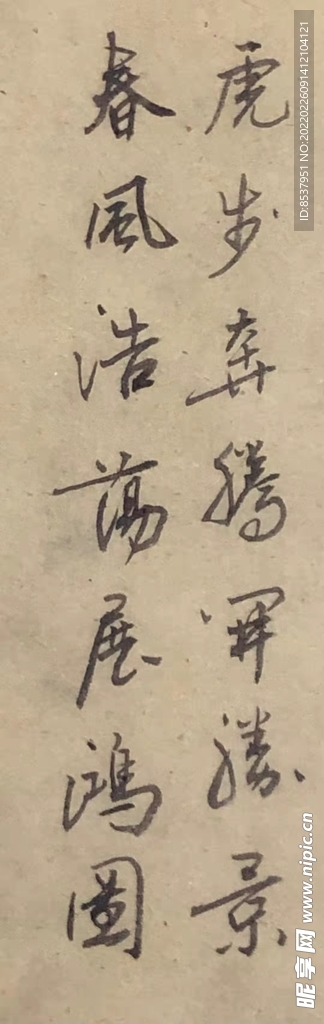 虎步奔騰開勝景
春風浩蕩展鴻圖
ID:8537951 NO:20220226091412104121
昵享网 www.nipic.cn